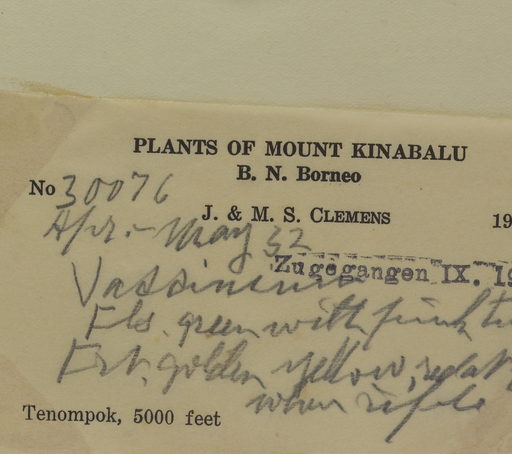 PLANTS OF MOUNT KINABALU
B. N. Borneo
No 30076
J. & M. S. CLEMENS 19
Apr.- May 32
Zugegangen IX. 19
Vaccinium
Fls. green with pink
Frt. golden yellow, red
when ripe
Tenompok, 5000 feet